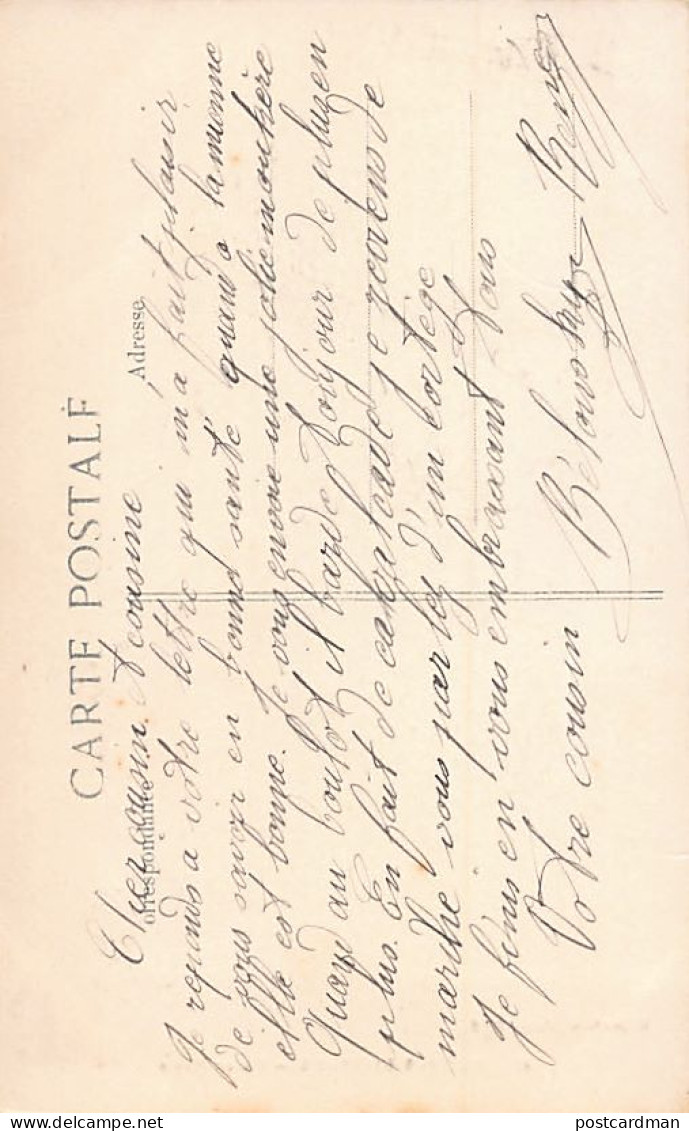 CARTE POSTALE
Correspondance
Adresse
Cher cousin et cousine
Je reponds a votre lettre qui m'a fait plaisir
de vous savoir en bonne santé quand a la mienne
elle est bonne. Je vous envoie une jolie
Quand au boulot il barde toujour de plus en
plus. En fait de cavalcade je
marche vous parlez d'un cortège
Je finis en vous embrassant tous
Votre cousin Bélowsky René
postcardman